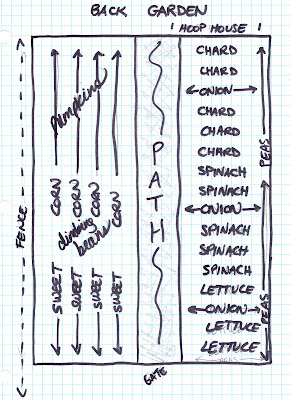 BACK GARDEN
HOOP HOUSE
FENCE
Pumpkins
SWEET CORN
SWEET CORN
SWEET CORN
SWEET CORN
climbing
beans
PATH
CHARD
CHARD
ONION
CHARD
CHARD
CHARD
SPINACH
SPINACH
ONION
SPINACH
SPINACH
SPINACH
LETTUCE
ONION
LETTUCE
LETTUCE
PEAS
PEAS
GATE